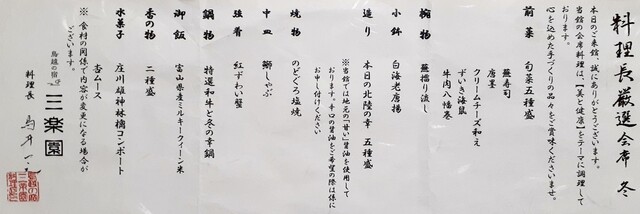 料理長厳選会席 冬
本日のご来館、誠にありがとうございます。
当館の会席料理は、【美と健康】をテーマに調理して
おります。
心を込めた手づくりの品々をご賞味くださいませ。
前菜 旬菜五種盛
蕪寿司
唐墨
クリームチーズ和え
ずいき海鼠
牛肉八幡巻
椀物 蕪擂り流し
小鉢 白海老唐揚
造り 本日の北陸の幸 五種盛
※当館では地元の「甘い」醤油を使用して
おります。辛口の醤油をご希望の際は係に
お申し付けください
焼物 のどぐろ塩焼
中皿 鰤しゃぶ
強肴 紅ずわい蟹
鍋物 特選和牛と冬の幸鍋
御飯 富山県産ミルキークイーン米
香の物 二種盛
水菓子 庄川雄神林檎コンポート
杏ムース
※食材の関係で内容が変更になる場合が
ございます。
鳥越の宿 三楽園
料理長